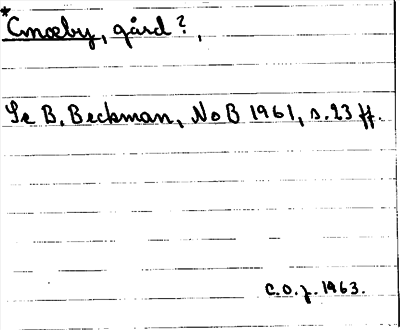 *Cmœby, gård?,
Se B. Beckman, NoB 1961, s. 23 ff.
C.O.J. 1963.